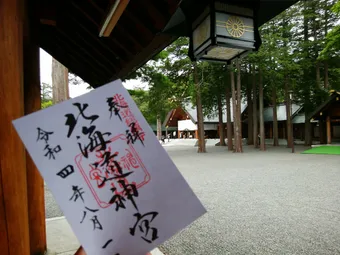 奉拝
北海道神宮
令和四年八月一